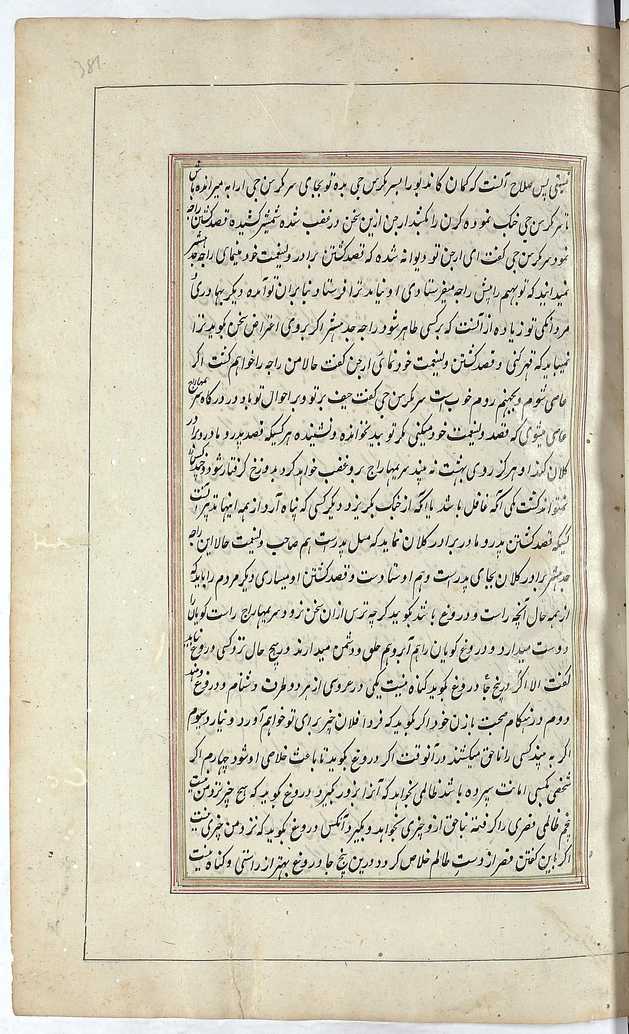 381
نیستی پس صلاح آنست که کمان کاندیو را بسر کرسن جی بده تو بجای سر کرسن جی ارابه میرانده باش
تا سر کرسن جی خنک نموده کرن را بکشد ارجن ازین سخن در غضب شده شمشیر کشیده قصد کشتن راجه
نمود سر کرسن جی گفت ای ارجن تو دیوانه شده که قصد کشتن برادر و ولینعمت خود مینمای راجه جدهشتر
نمیدانید که تو بهیم را پیش راجه میفرستادی او نیامد ترا فرستاد بنابران تو آمده دیگر بهادری و
مردانگی تو زیاده از آنست که بر کسی ظاهر شود راجه جدهشتر اگر بروی اعتراض سخن بگوید ترا
نمیباید که قهر کنی و قصد کشتن ولینعمت خود نمای ارجن گفت حالا من راجه را خواهم کشت اگر
عاصی شوم و بجهنم روم خوب است سر کرسن جی گفت حیف بر تو و بر احوال تو باد در درگاه سریمهاراج
عاصی میشوی که قصد ولینعمت خود میکنی مگر تو بید نخوانده و نشنیده هر کسیکه قصد پدر و مادر و برادر
کلان کند او هرگز روی بهشت نه بیند سریمهاراج برو غضب خواهد کرد بدوزخ گرفتار شود و چند کس را
نمیتواند کشت یکی آنکه غافل باشد یا آنکه از جنک بگریزد دیگر کسی که پناه آرد از همه اینها بدتر است
کسیکه قصد کشتن پدر و مادر برادر کلان نماید که مثل پدر است هم صاحب ولینعمت حالا این راجه
جدهشتر برادر کلان بجای پدر است و هم اوستاد است و قصد کشتن او میسازی دیگر مردم را باید که
از همه حال آنچه راست و دروغ باشد بگوید که چه ترس ازان سخن زود سریمهاراج راست گویان را
دوست میدارد و دروغ گویان را هم آبرو هم خلق دشمن میدارند در هیچ حال نزد کسی دروغ نباید
گفت الا اگر در پنج جا دروغ بگوید گناه نیست یکی در عروسی از هر دو طرف دشنام و دروغ دهند
دوم در هنگام صحبت با زن خود اگر بگوید که فردا فلان چیز برای تو خواهم آورد و نیارد سیوم
اگر به بیند کسی را ناحق میکشند در آنوقت اگر دروغ بگوید تا باعث خلاصی او شود چهارم اگر
شخصی بکسی امانت سپرده باشد ظالمی بخواهد که آنرا بزور بگیرد دروغ بگوید که هیچ چیز نزد من نیست
پنجم ظالمی فقیری را گرفته ناحق ازو چیزی بخواهد بگیرد آنکس دروغ بگوید که نزد من چیزی نیست
اگر باین گفتن فقیر از دست ظالم خلاص گردد درین پنج جا دروغ بهتر از راستی و گناه نیست